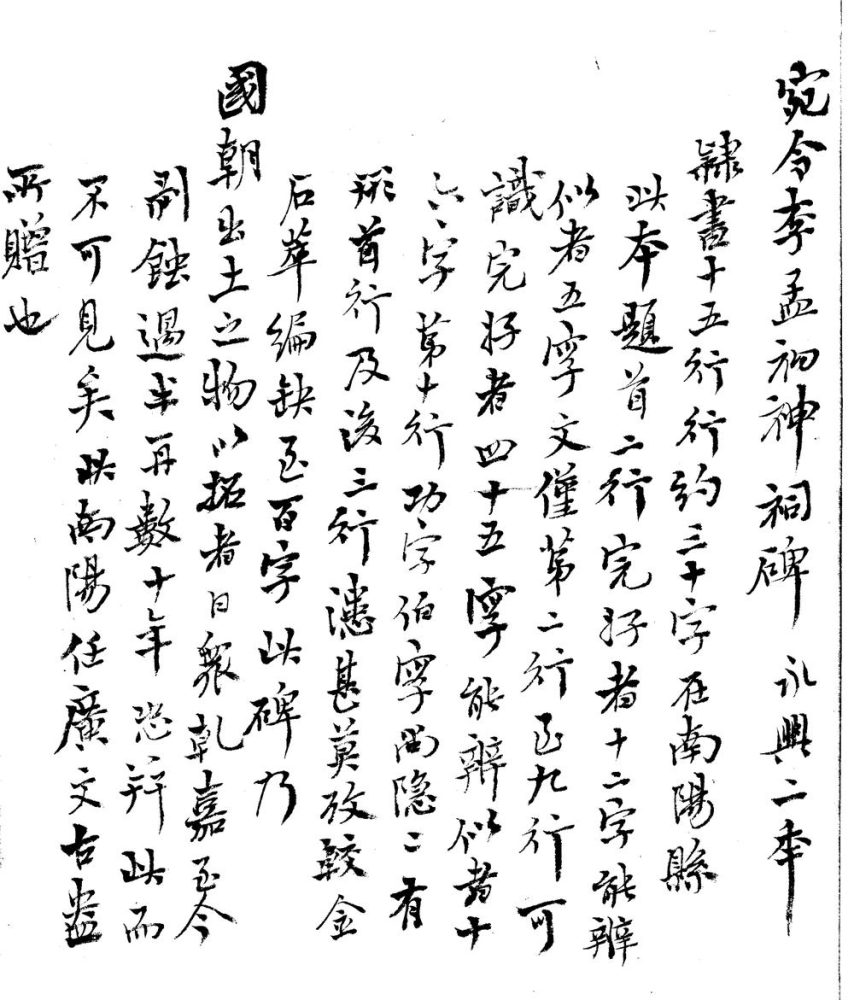 宛令李孟初神祠碑 永興二年
隸書十五行行約三十字在南陽縣
此本題首二行完好者十二字能辨
似者五字文僅第二行至九行可
識完好者四十五字能辨似者十
六字第十行功字伯字尚隐二有
形首行及後三行漶甚莫攷較金
石萃編缺至百字此碑乃
國朝出土之物以拓者日衆乾嘉至今
剥蝕過半再數十年恐辩此而
不可見矣此南陽任廣文古盝
所贈也